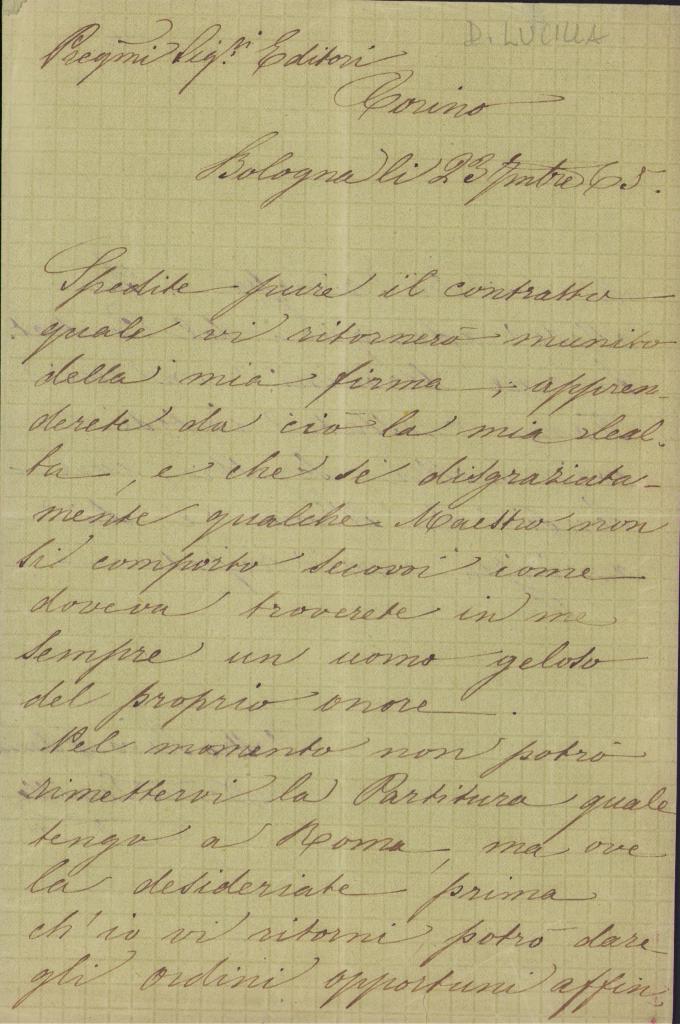 D. LUCILLA
Pregmi Sigri Editori
Torino
Bologna li 23 7mbre 65.
Spedite pure il contratto
quale vi ritornerò munito
della mia firma; appren-
derete da ciò la mia leal-
tà, e che se disgraziata-
mente qualche Maestro non
si comportò secovoi come
doveva troverete in me
sempre un uomo geloso
del proprio onore.
Pel momento non potrò
rimettervi la Partitura quale
tengo a Roma, ma ove
la desideriate prima
ch'io vi ritorni, potrò dare
gli ordini opportuni affin